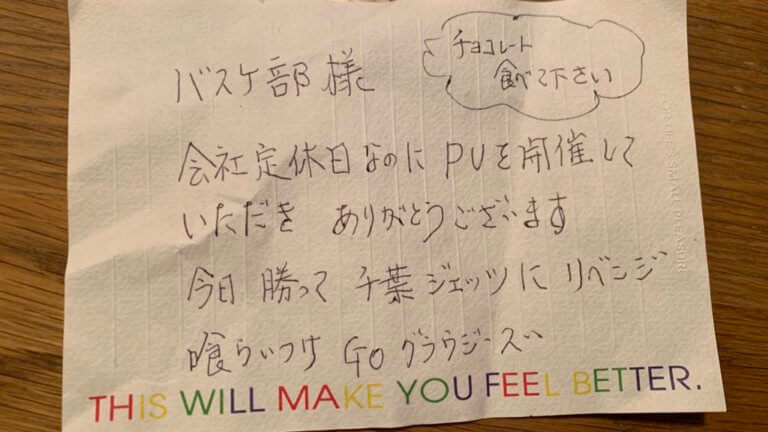 バスケ部様
チョコレート
食べて下さい
会社定休日なのにPVを開催して
いただき ありがとうございます
今日 勝って 千葉ジェッツに リベンジ
喰らいつけ GO グラウジーズ
THIS WILL MAKE YOU FEEL BETTER.